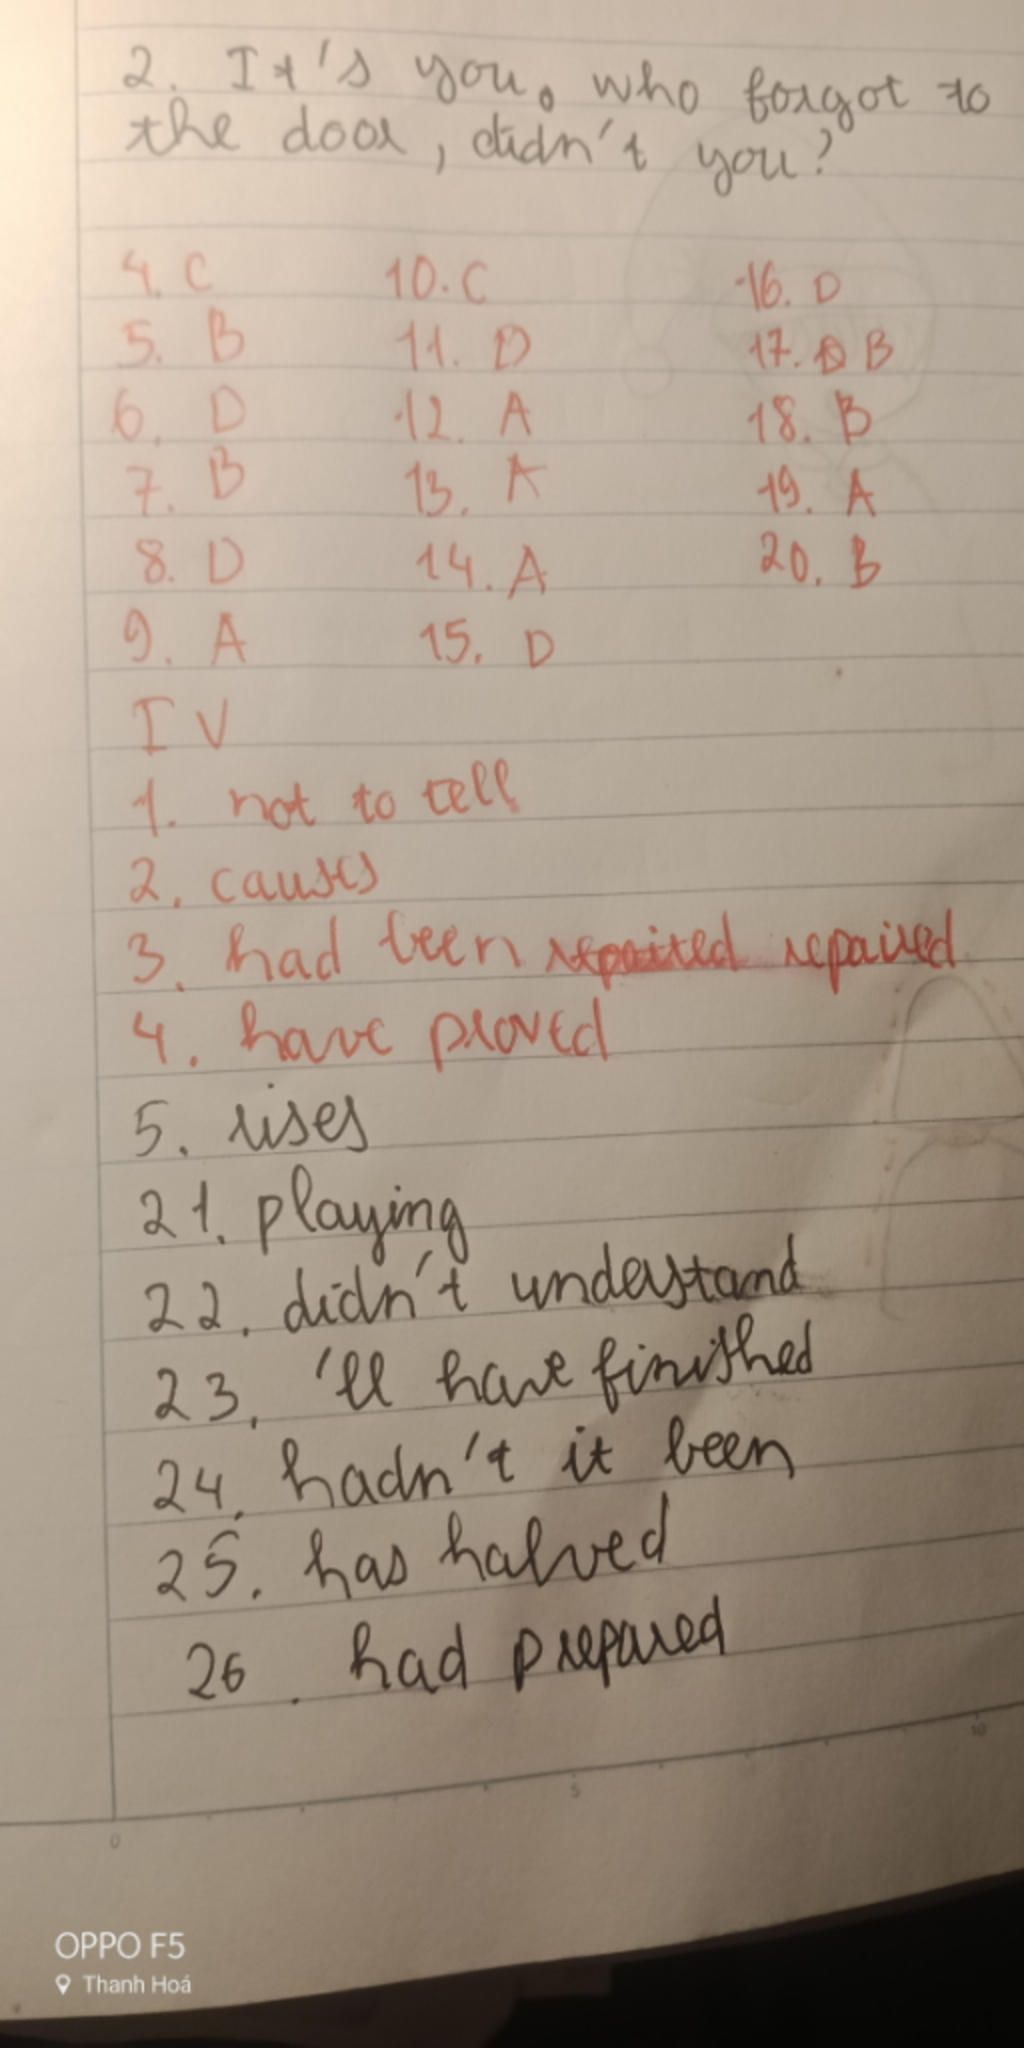 2. It's you. who forgot to
the door, didn't you?
4. C 10. C 16. D
5. B 11. D 17. B
6. D 12. A 18. B
7. B 13. A 19. A
8. D 14. A 20. B
9. A 15. D
IV
1. not to tell
2. causes
3. had been repaired repaired
4. have proved
5. rises
21. playing
22. didn't understand
23. 'll have finished
24. hadn't it been
25. has halved
26. had prepared
0 5 10
OPPO F5
Thanh Hoá